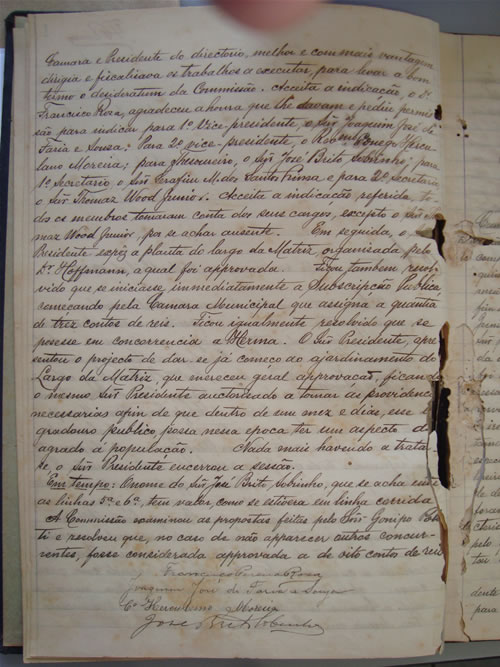 Camara e Presidente do directorio, melhor e com mais vantagem
dirigia e fiscalisava os trabalhos a executar, para levar a bom
termo o desideratum da Commissão. Acceita a indicação, o Dr.
Francisco Rosa, agradeceu a honra que lhe davam e pédiu permis
são para indicar para 1º Vice-presidente, o Snr Joaquim José de
Faria e Sousa: Para 2º vice-presidente, o Revmo Conego Hercu
lano Moreira; para Thesoureiro, o Snr José Brito Sobrinho; para
1º Secretario o Snr Serafim M. dos Santos e para 2º Secretario
o Snr Thomaz Wood Junior. Acceita a indicação referida, to
dos os membros tomaram conta dos seus cargos, excepto o Snr
maz Wood Junior, por se achar ausente. Em seguida, o
Presidente expoz a planta do largo da Matriz, organisada pelo
Dr Hoffmann, a qual foi approvada. Ficou tambem resol
vido que se iniciasse immediatamente a Subscripção Publica
começando pela Camara Municipal que assigna a quantia
de trez contos de reis. Ficou igualmente resolvido que se
posesse em concorrencia a Herma. O Snr Presidente, apre
sentou o projecto de dar-se já começo ao ajardinamento do
Largo da Matriz, que mereceu géral approvação, ficando
o mesmo Snr Presidente auctorisado a tomar as providencias
necessarias afim de que dentro de um mez e dias, esse lo
gradouro publico possa nessa epoca ter um aspecto de
agrado á população. Nada mais havendo a tratar
se, o Snr Presidente encerrou a sessão.
Em tempo: O nome do Snr José Brito Sobrinho, que se acha entre
as linhas 5ª e 6ª, tem valor, como se estivera em linha corrida
A Commissão examinou as propostas feitas pelo Snr
ti e resolveu que, no caso de não apparecer outros concur-
rentes, fosse considerada approvada a de oito contos de reis
Francisco Pereira Rosa
Joaquim José de Faria e Souza
Co Herculano Moreira
José Brito Sobrinho